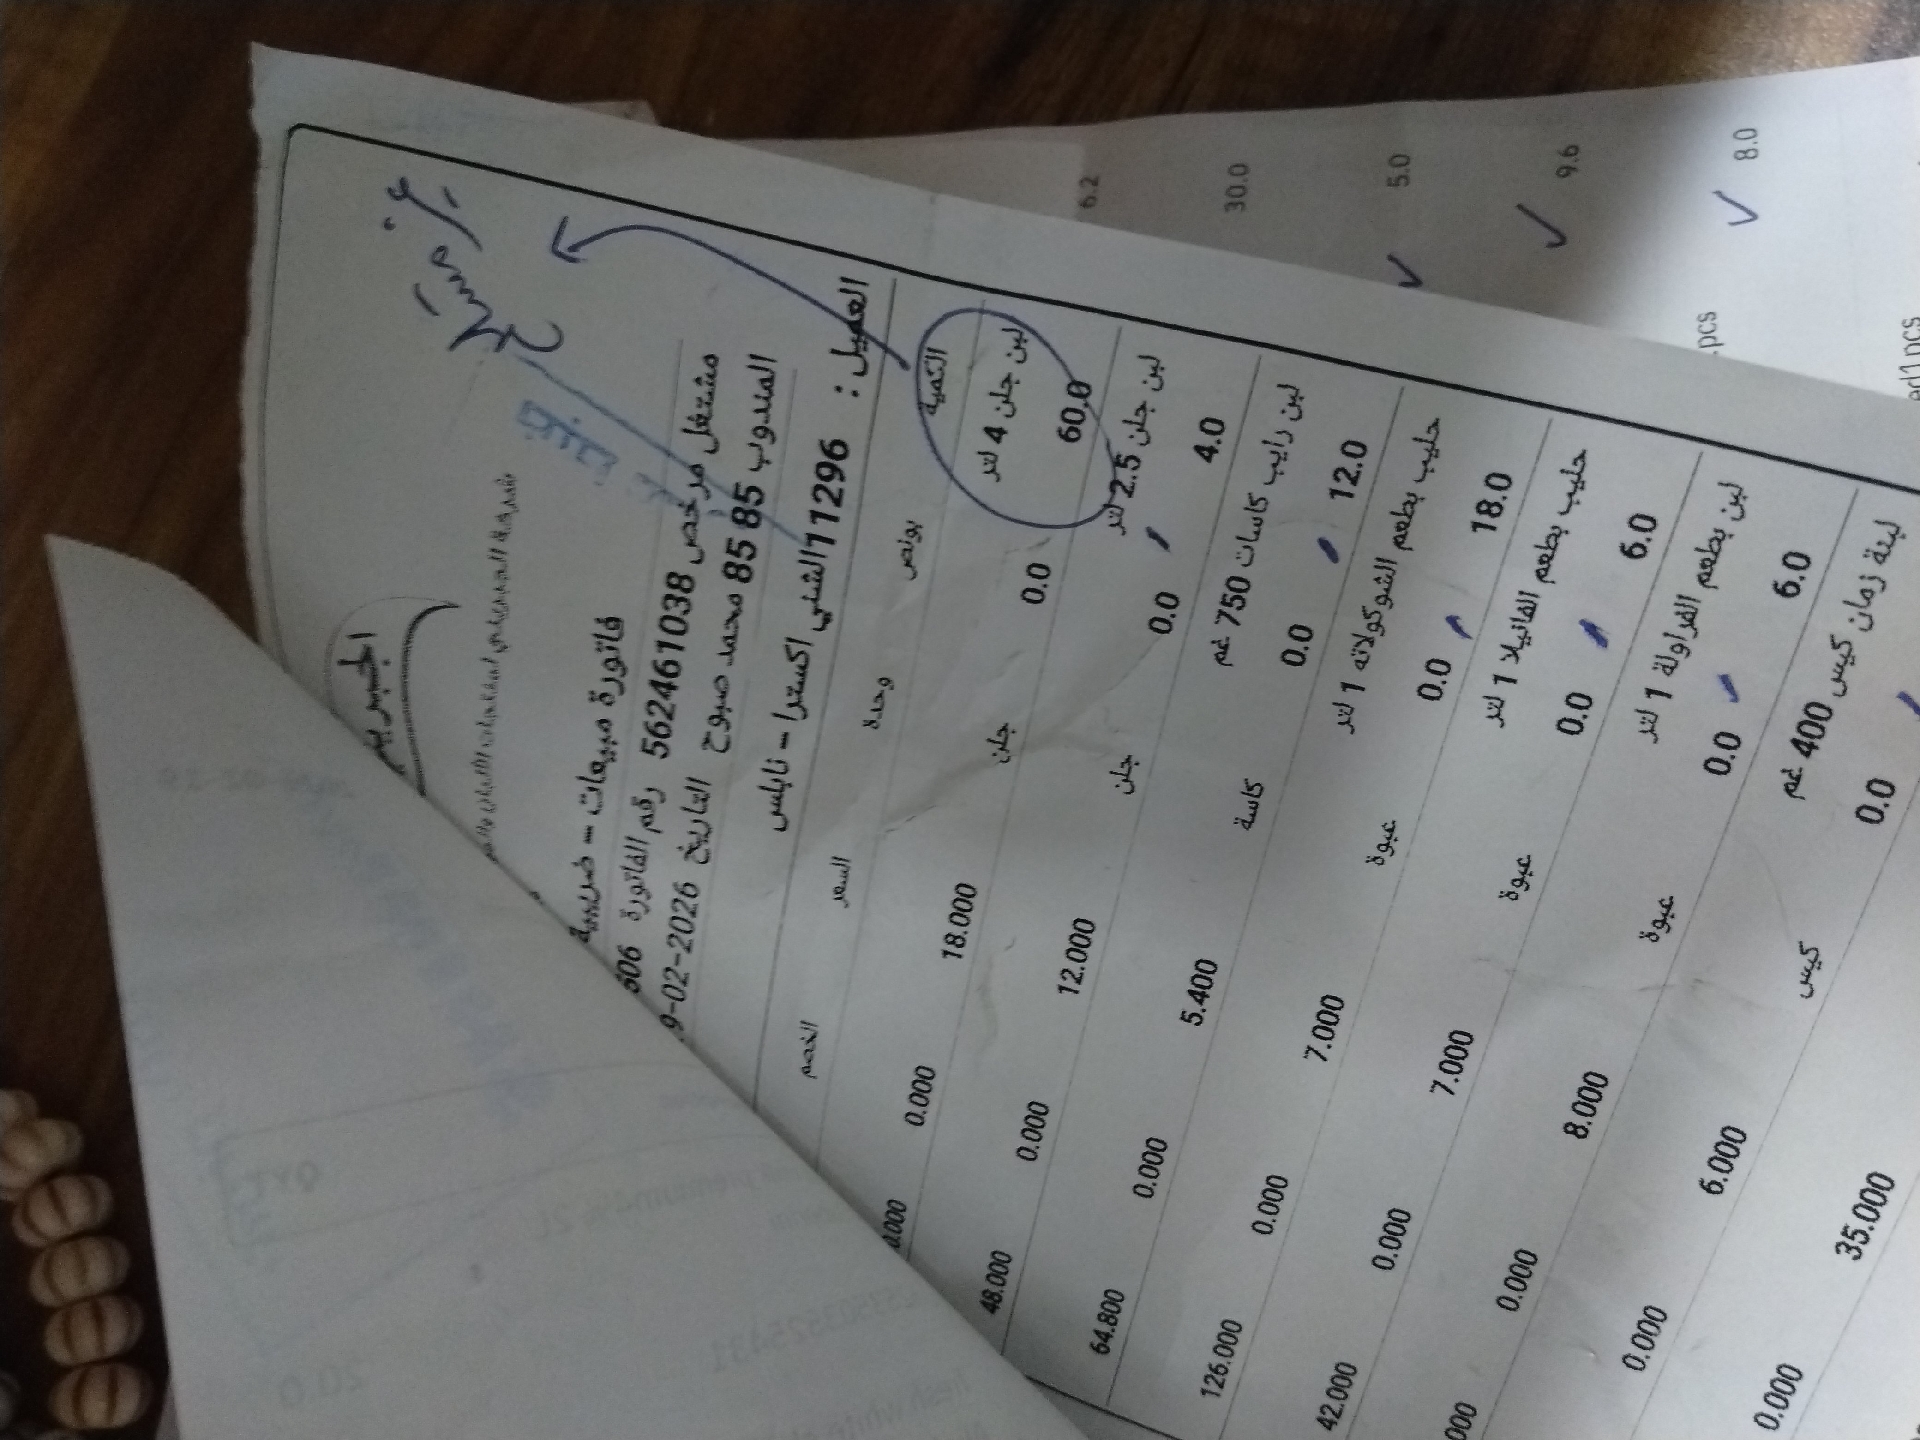 الجبريني
فاتورة مبيعات - ضريبية
مشتغل مرخص 562461038 رقم الفاتورة 606
المندوب 85 85 محمد صبوح التاريخ 9-02-2026
العميل : 11296 الشني اكسترا - نابلس
الكمية بونص وحدة السعر الخصم
لبن جلن 4 لتر
60.0 0.0 جلن 18.000 0.000 0.000
لبن جلن 2.5 لتر
4.0 0.0 جلن 12.000 0.000 48.000
لبن رايب كاسات 750 غم
12.0 0.0 كاسة 5.400 0.000 64.800
حليب بطعم الشوكولاته 1 لتر
18.0 0.0 عبوة 7.000 0.000 126.000
حليب بطعم الفانيلا 1 لتر
6.0 0.0 عبوة 7.000 0.000 42.000
لبن بطعم الفراولة 1 لتر
6.0 0.0 عبوة 8.000 0.000 000
لبنة زمان كيس 400 غم
0.0 كيس 6.000 0.000
35.000 0.000
6.2
30.0
5.0
9.6
8.0
pcs
ed1pcs